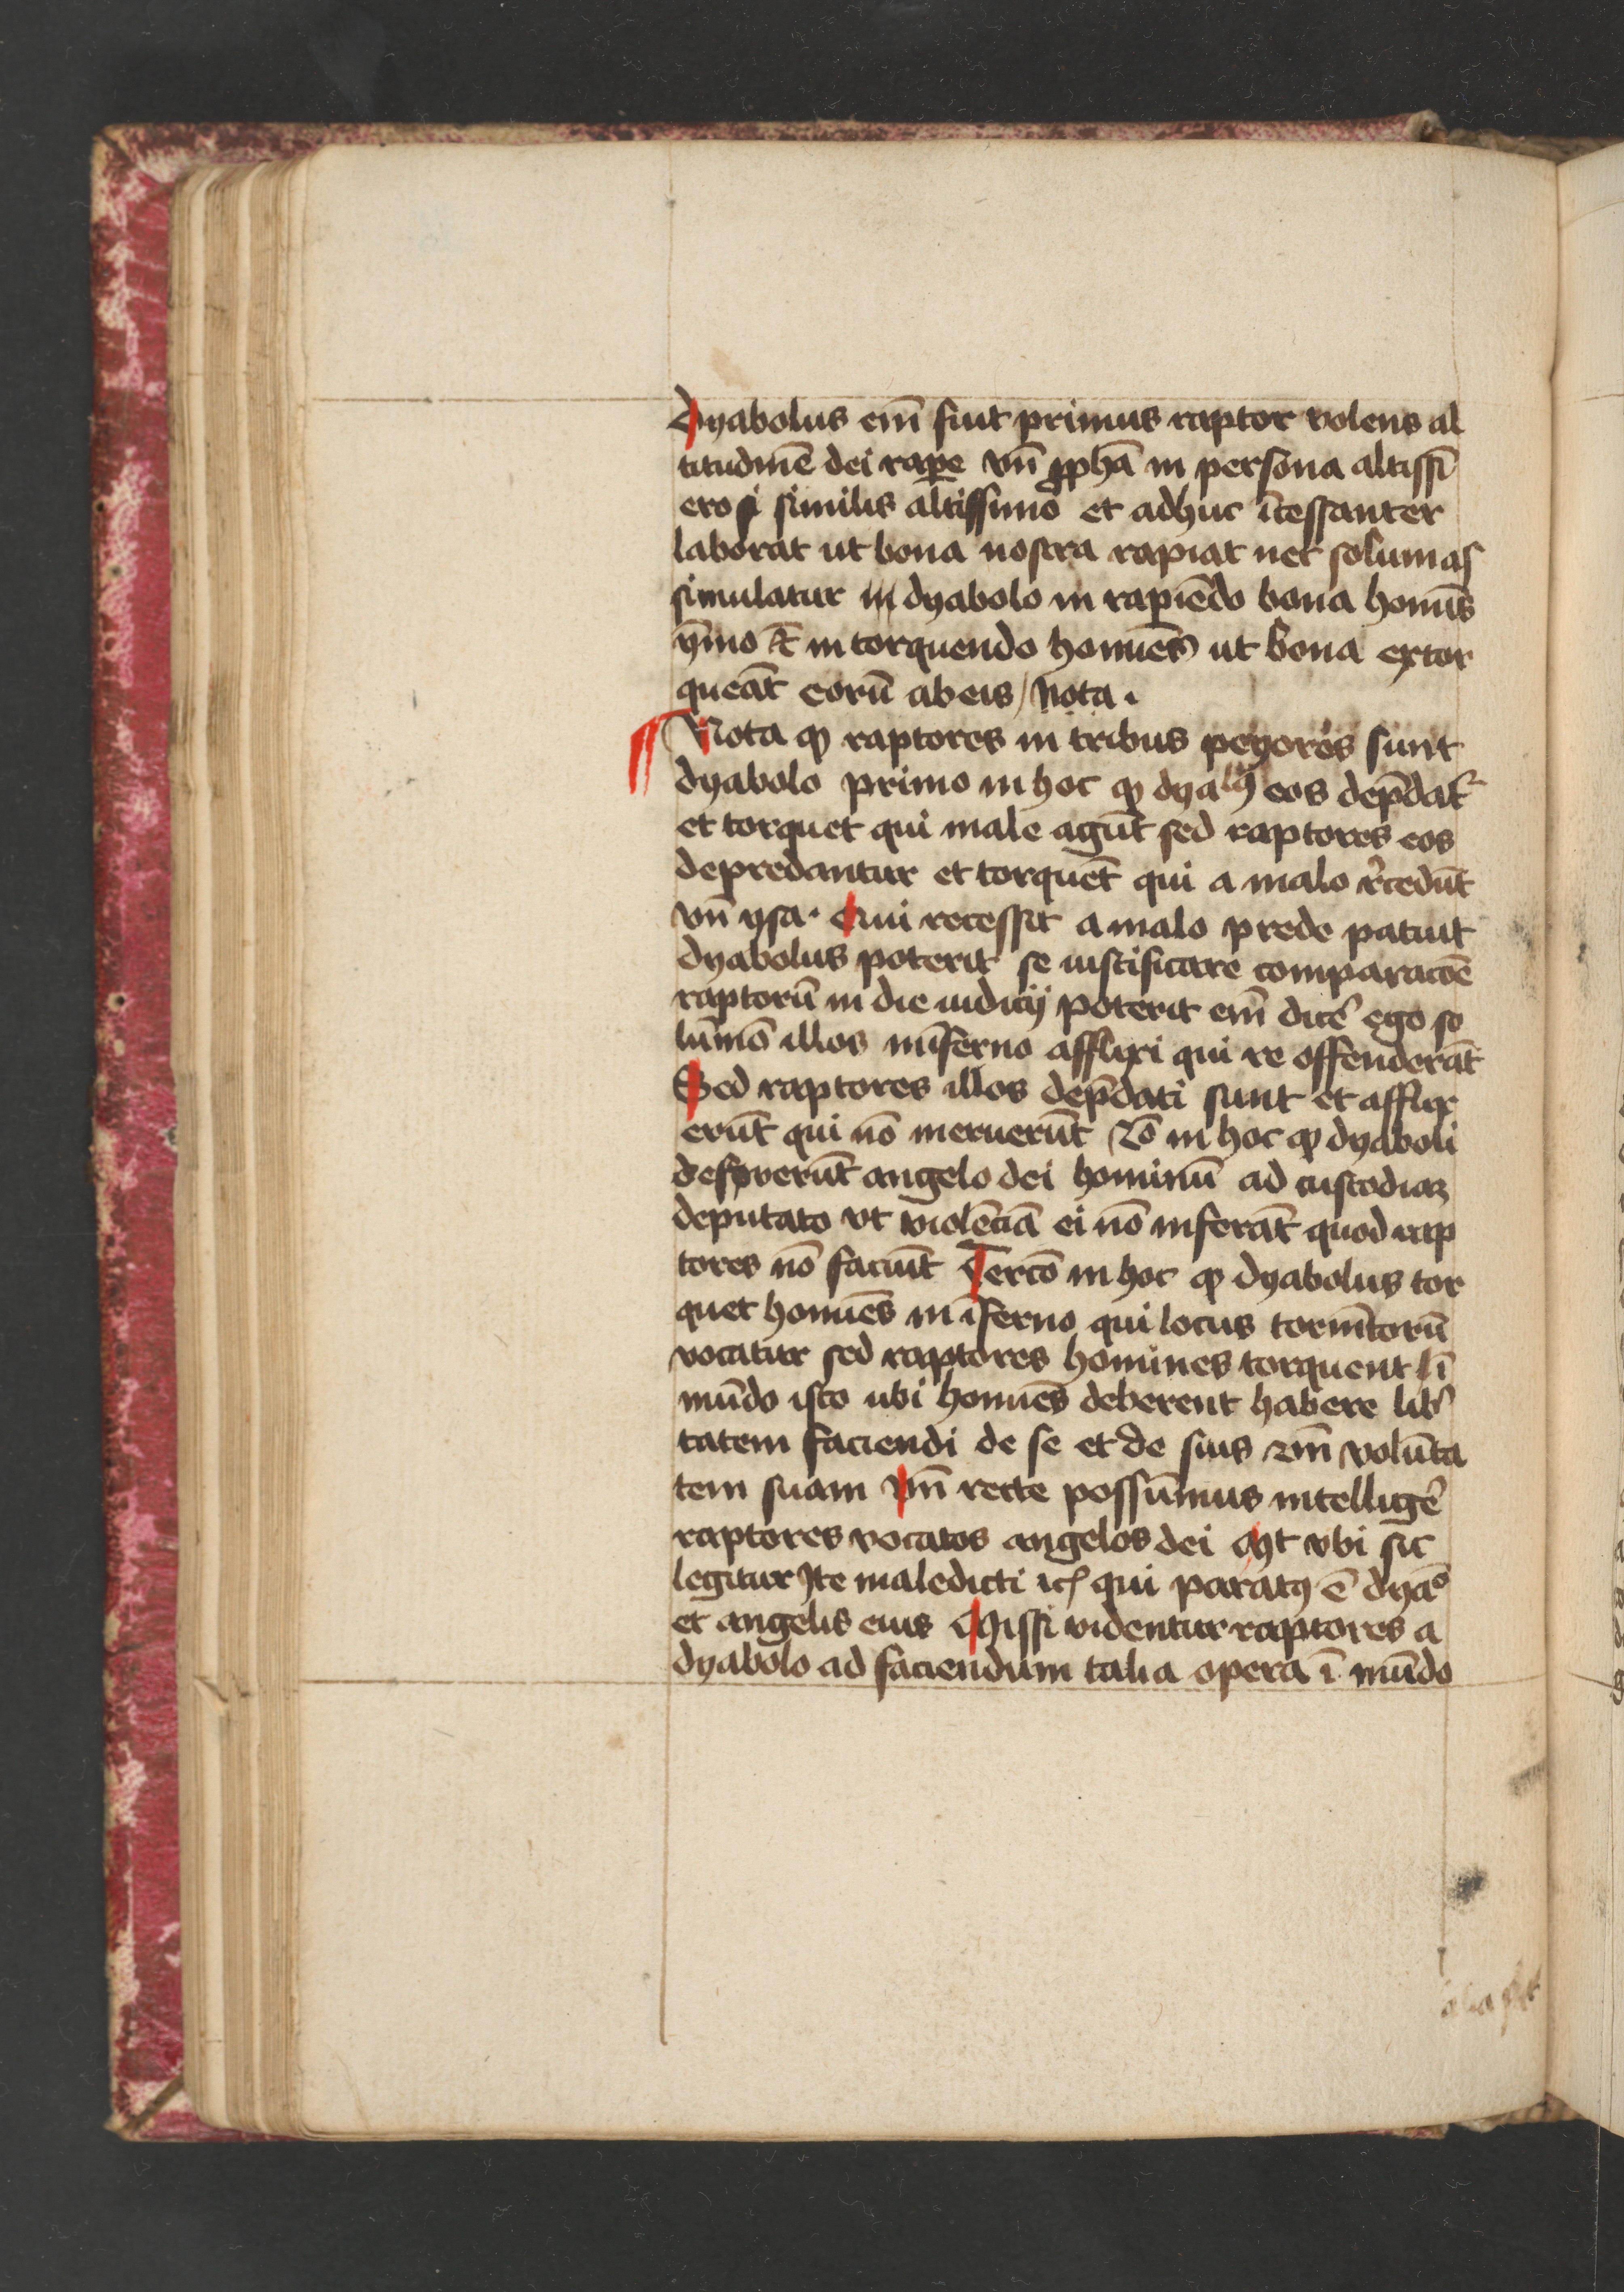 Dyabolus em̄ fuit primus raptor volens al
titudinē dei rape vn̄ ꝓphā in persona altissī
ero similis altissimo et adhuc īcessanter
laborat ut bona nostra rapiat nec solum as
simulatur dyabolo in rapiēdo bona homīs
ymo et̄ in torquendo homīes ut bona extor
queāt eorū ab eis / Nota .
¶ Nota ꝙ raptores in tribus peyores sunt
dyabolo primo in hoc ꝙ dyalꝰ eos dep̄dat᷑
et torquet qui male agūt sed raptores eos
depredantur et torquēt qui a malo rͨcedūt
vn̄ ysa. Qui recessit a malo prede patuit
dyabolus poterit se iustificare comparacōe
raptorū in die iudicij poterit em̄ dicē ego so
lūmō illos in īferno afflixi qui te offenderāt
Sed raptores illos dep̄dati sunt et afflix
erūt qui nō meruerūt 2ō in hoc ꝙ dyaboli
deferuerūt angelo dei hominū ad custodiaꝫ
deputato vt violēciā ei nō inferāt quod rap
tores nō faciūt Tercō in hoc ꝙ dyabolus tor
quet homīes in īferno qui locus tormētorū
vocatur sed raptores homines torquent ī
mūdo isto ubi homīes deberent habere lib̾
tatem faciendi de se et de suis 2m̄ volūta
tem suam Vn̄ recte possūmus intelligē
raptores vocatos angelos dei Mt vbi sic
legitur Ite maledicti ꝛcͭ qui paratꝰ ē dyaͦ
et angelis eius Missi videntur raptores a
dyabolo ad faciendum talia opera ī mūdo